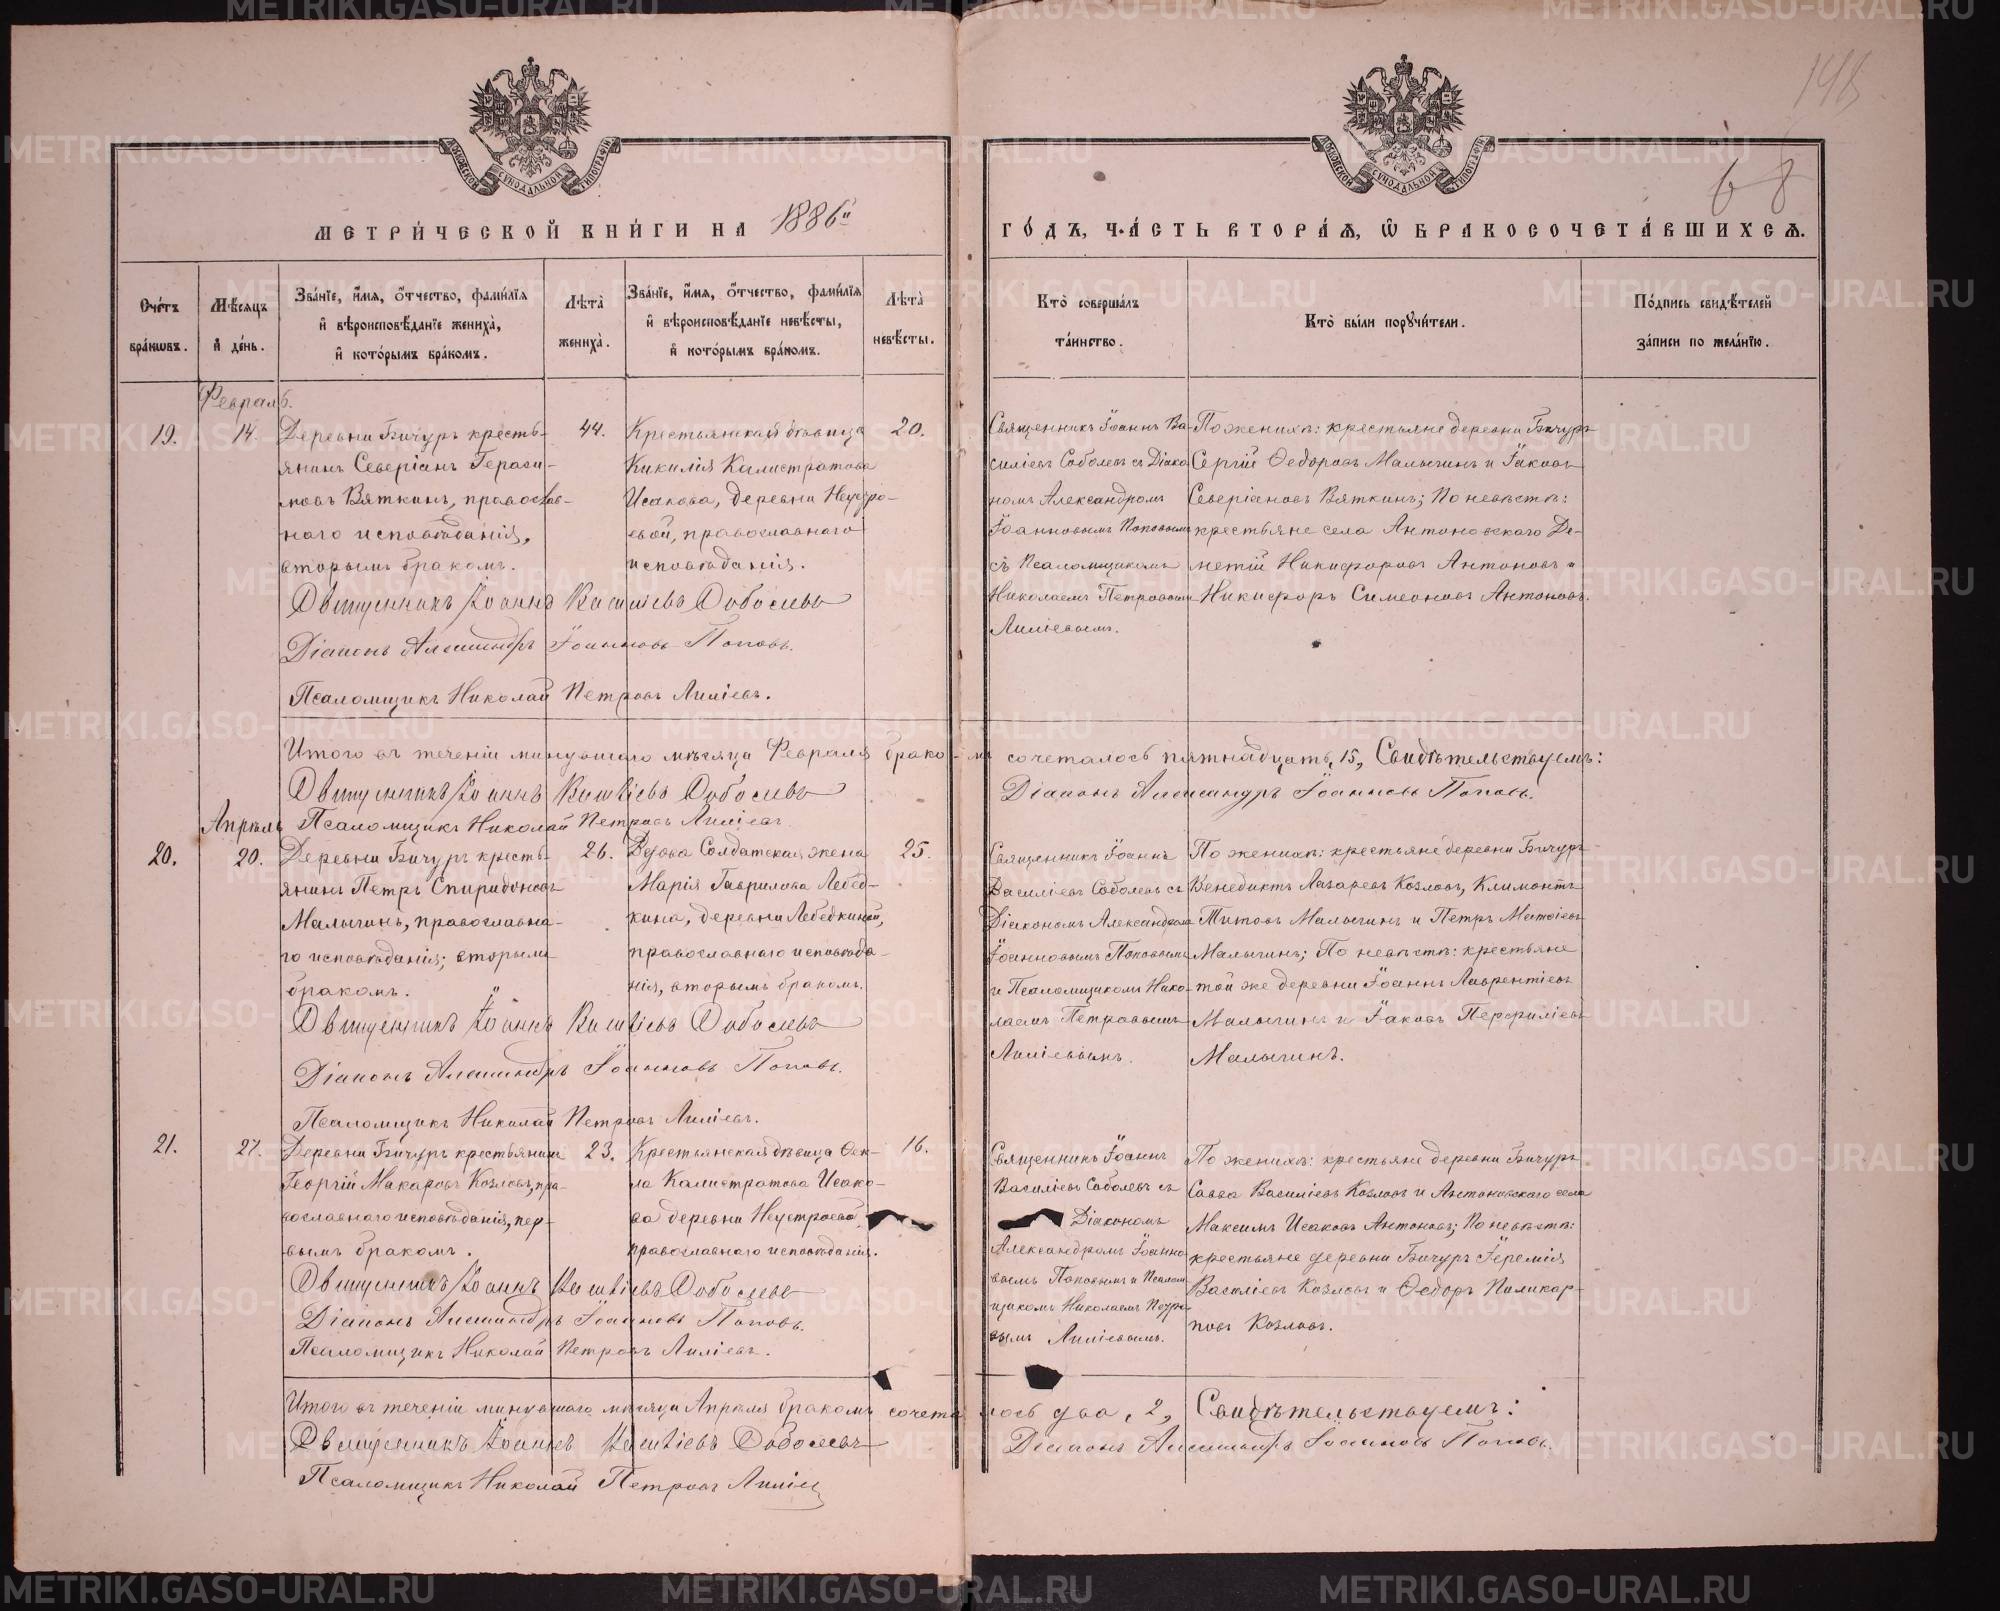 METRIKI.GASO-URAL.RU
146
68
МОСКОВСКОЙ СѴНОДАЛЬНОЙ ТИПОГРАФІИ
МОСКОВСКОЙ СѴНОДАЛЬНОЙ ТИПОГРАФІИ
МЕТРИ́ЧЕСКОЙ КНИ́ГИ НА 1886й
ГО́ДЪ, ЧА́СТЬ ВТОРА́Я, Ѿ БРАКОСОЧЕТА́ВШИХСЯ.
Сче́тъ
бра́ковъ.
Мѣ́сяцъ
и҆ де́нь.
Зва́нїе, и҆́мя, ѻ҆́тчество, фами́лїя
и҆ вѣроисповѣ́данїе жениха̀,
и҆ кото́рымъ бра́комъ.
Лѣ́та̀
жениха̀.
Зва́нїе, и҆́мя, ѻ҆́тчество, фами́лїя
и҆ вѣроисповѣ́данїе невѣ́сты,
и҆ кото́рымъ бра́комъ.
Лѣ́та̀
невѣ́сты.
Кто̀ соверша́лъ
та́инство.
Кто̀ бы́ли порꙋчи́тели.
По́дпись свидѣ́телей
за́писи по жела́нїю.
Февраль.
19.
14.
Деревни Бичуръ кресть-
янинъ Северіанъ Гераси-
мовъ Вяткинъ, православ-
наго исповѣданія,
вторымъ бракомъ.
44.
Крестьянская дѣвица
Кикилія Калистратова
Исакова, деревни Неустро-
евой, православнаго
исповѣданія.
20.
Священникъ Іоаннъ Ва-
силіевъ Соболевъ съ Діако-
номъ Александромъ
Іоанновымъ Поповымъ
съ Псаломщикомъ
Николаемъ Петровымъ
Лиліевымъ.
По женихѣ: крестьяне деревни Бичуръ
Сергій Ѳедоровъ Малыгинъ и Іаковъ
Северіановъ Вяткинъ; По невѣстѣ:
крестьяне села Антоновскаго Де-
метій Никифоровъ Антоновъ и
Никифоръ Симеоновъ Антоновъ.
Священникъ Іоаннъ Василіевъ Соболевъ
Діаконъ Александръ Іоанновъ Поповъ.
Псаломщикъ Николай Петровъ Лиліевъ.
Итого въ теченіи минувшаго мѣсяца Февраля бракомъ сочеталось пятнадцать, 15, Свидѣтельствуемъ:
Священникъ Іоаннъ Василіевъ Соболевъ
Діаконъ Александръ Іоанновъ Поповъ.
Псаломщикъ Николай Петровъ Лиліевъ
Апрѣль
20.
20.
Деревни Бичуръ кресть-
янинъ Петръ Спиридоновъ
Малыгинъ, православна-
го исповѣданія; вторымъ
бракомъ.
26.
Вдова Солдатская жена
Марія Гаврилова Лебед-
кина, деревни Лебедкиной,
православнаго исповѣда-
нія, вторымъ бракомъ.
25.
Священникъ Іоаннъ
Василіевъ Соболевъ съ
Діакономъ Александромъ
Іоанновымъ Поповымъ
и Псаломщикомъ Нико-
лаемъ Петровымъ
Лиліевымъ.
По женихѣ: крестьяне деревни Бичуръ
Венедиктъ Лазаревъ Козловъ, Климонтъ
Титовъ Малыгинъ и Петръ Матѳіевъ
Малыгинъ; По невѣстѣ: крестьяне
той же деревни Іоаннъ Лаврентіевъ
Малыгинъ и Іаковъ Перфиліевъ
Малыгинъ.
Священникъ Іоаннъ Василіевъ Соболевъ
Діаконъ Александръ Іоанновъ Поповъ.
Псаломщикъ Николай Петровъ Лиліевъ.
21.
27.
Деревни Бичуръ крестьянинъ
Георгій Макаровъ Козловъ, пра-
вославнаго исповѣданія, пер-
вымъ бракомъ.
23.
Крестьянская дѣвица Ѳек-
ла Калистратова Исако-
ва деревни Неустроевой
православнаго исповѣданія.
16.
Священникъ Іоаннъ
Василіевъ Соболевъ съ
Діакономъ
Александромъ Іоанно-
вымъ Поповымъ и Псалом-
щикомъ Николаемъ Петро-
вымъ Лиліевымъ.
По женихѣ: крестьяне деревни Бичуръ
Савва Василіевъ Козловъ и Антоновскаго села
Максимъ Исаковъ Антоновъ; По невѣстѣ:
крестьяне деревни Бичуръ Іеремія
Василіевъ Козловъ и Ѳедоръ Поликар-
повъ Козловъ.
Священникъ Іоаннъ Василіевъ Соболевъ
Діаконъ Александръ Іоанновъ Поповъ.
Псаломщикъ Николай Петровъ Лиліевъ.
Итого въ теченіи минувшаго мѣсяца Апрѣля бракомъ сочеталось два, 2, Свидѣтельствуемъ:
Священникъ Іоаннъ Василіевъ Соболевъ
Діаконъ Александръ Іоанновъ Поповъ.
Псаломщикъ Николай Петровъ Лиліевъ